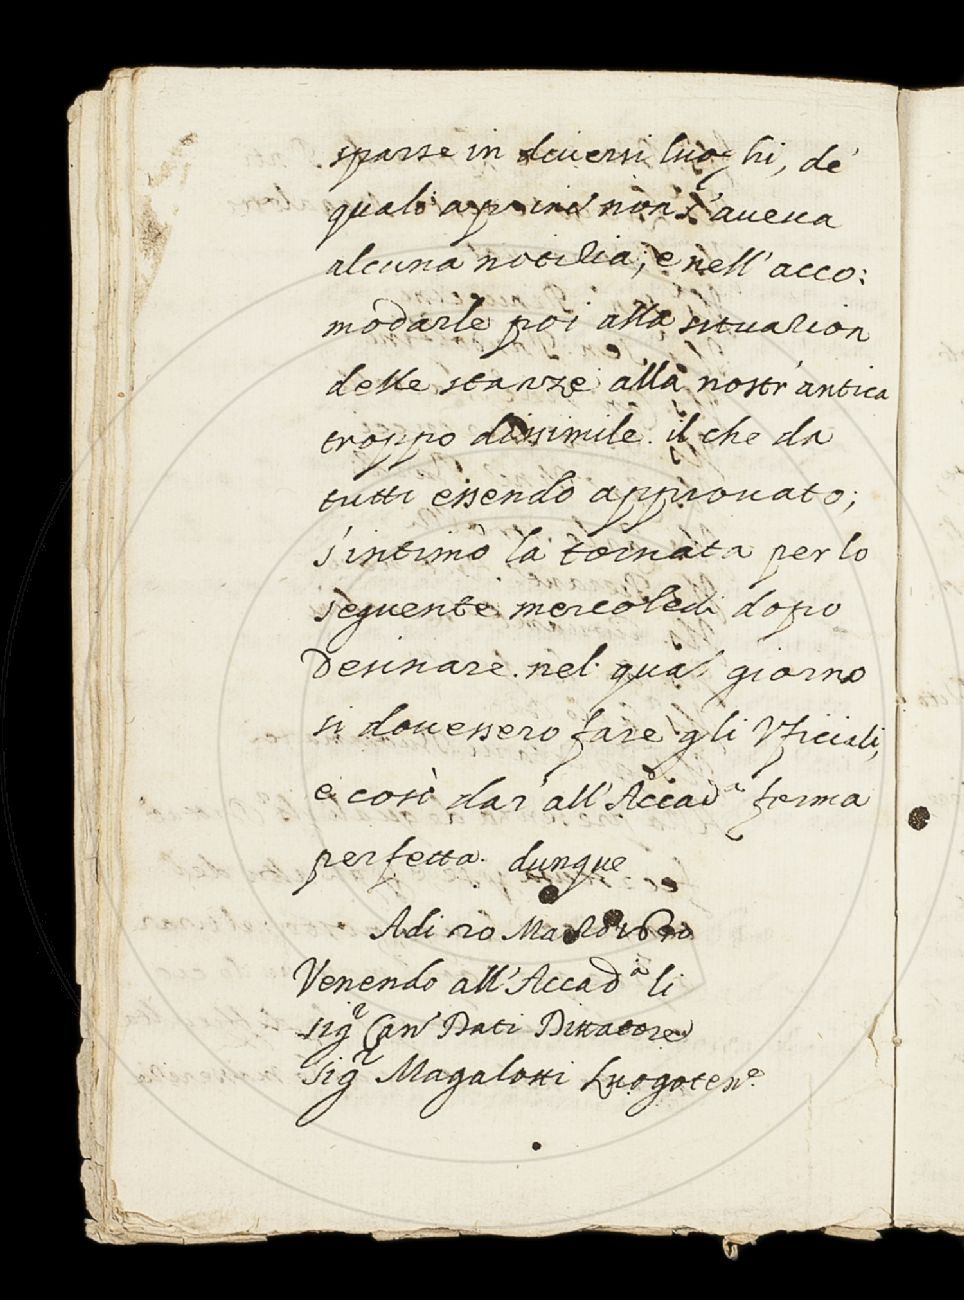 sparse in diuersi luoghi, de'
quali a prima non s'aueua
alcuna notizia; e nell'acco:
modarle poi alla situazion
delle stanze alla nostr'antica
troppo dissimile. il che da
tutti essendo approuato;
s'intimò la tornata per lo
seguente mercoledi dopo
Desinare. nel qual giorno
si douessero fare gli Vficiali,
e così dar all'Accad.a forma
perfetta. dunque
Adi 20 Marzo
Venendo all'Accad.a li
Sig.r Can.co Dati Dittatore
Sig.r Magalotti Luogoten.e